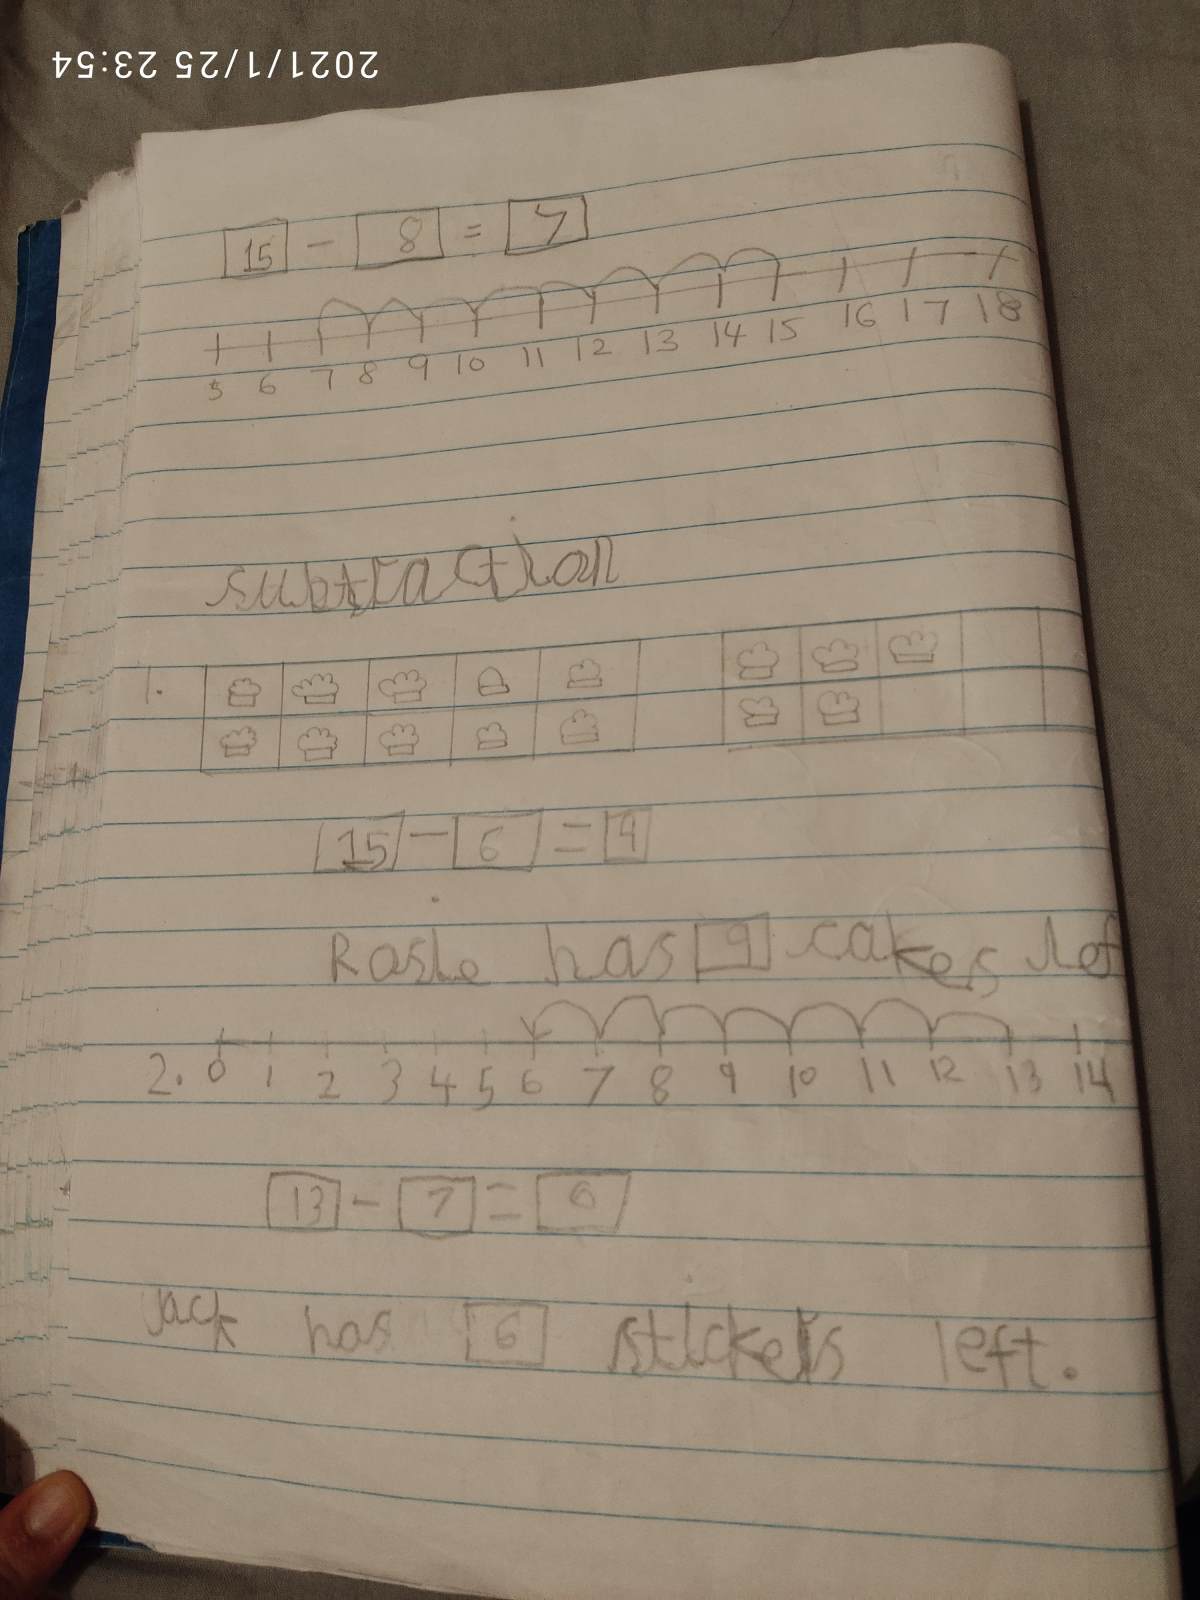 2021/1/25 23:54
15 - 8 = 7
5 6 7 8 9 10 11 12 13 14 15 16 17 18
subtraction
1.
15 - 6 = 9
Rosie has 9 cakes lef
2. 0 1 2 3 4 5 6 7 8 9 10 11 12 13 14
13 - 7 = 6
Jack has 6 stickers left.